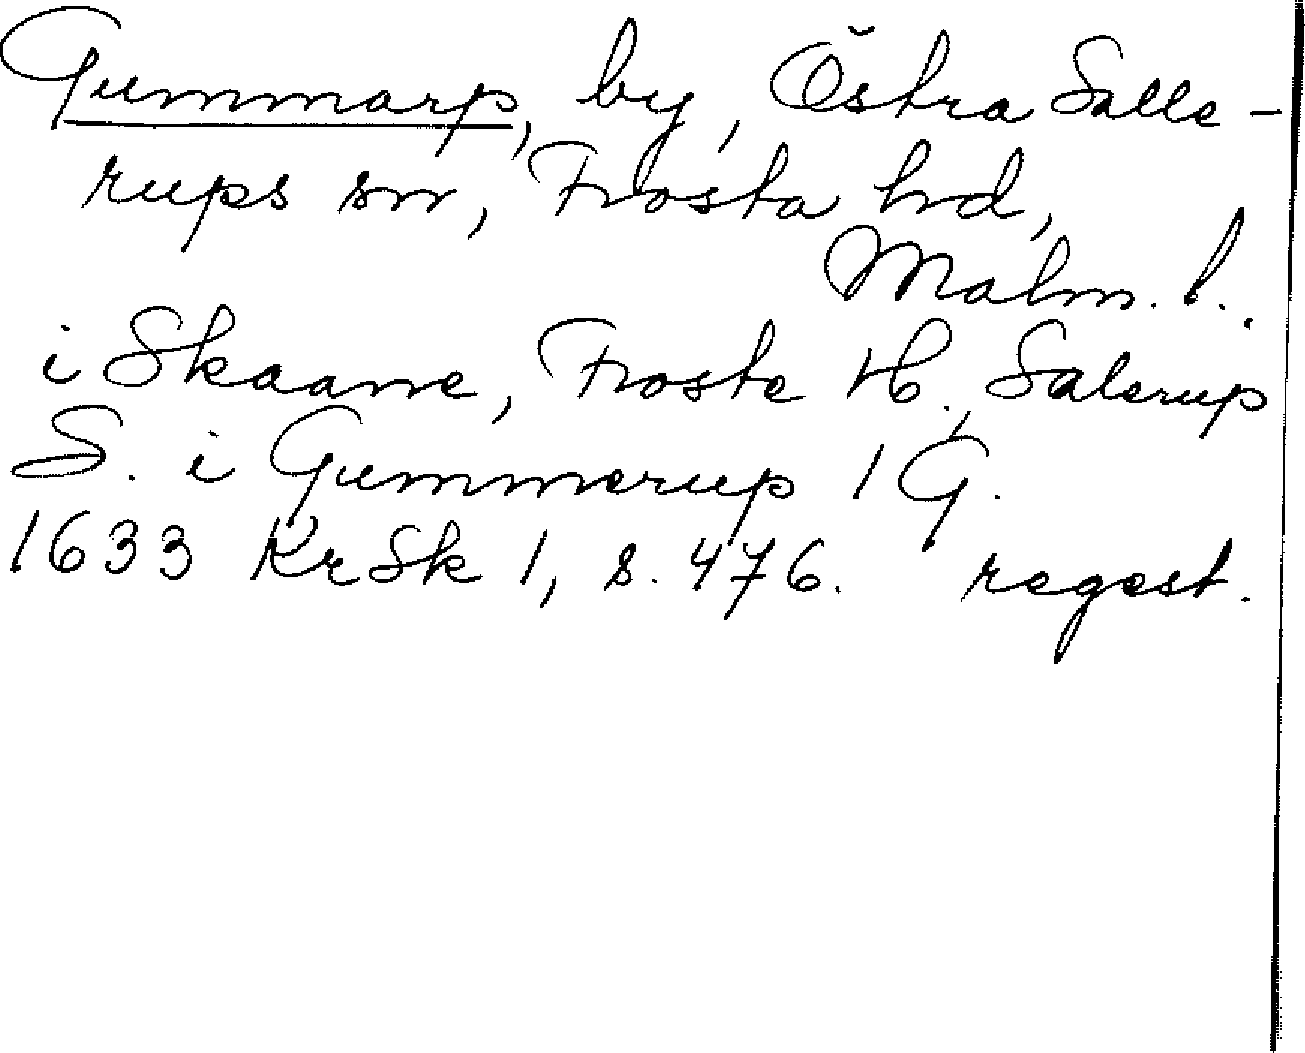 Gummarp, by, Östra Salle-
rups sn, Frosta hd,
Malm. l.
i Skaane, Froste H., Salerup
S. i Gummerup 1 G.
1633 KrSk 1, s. 476. regest.